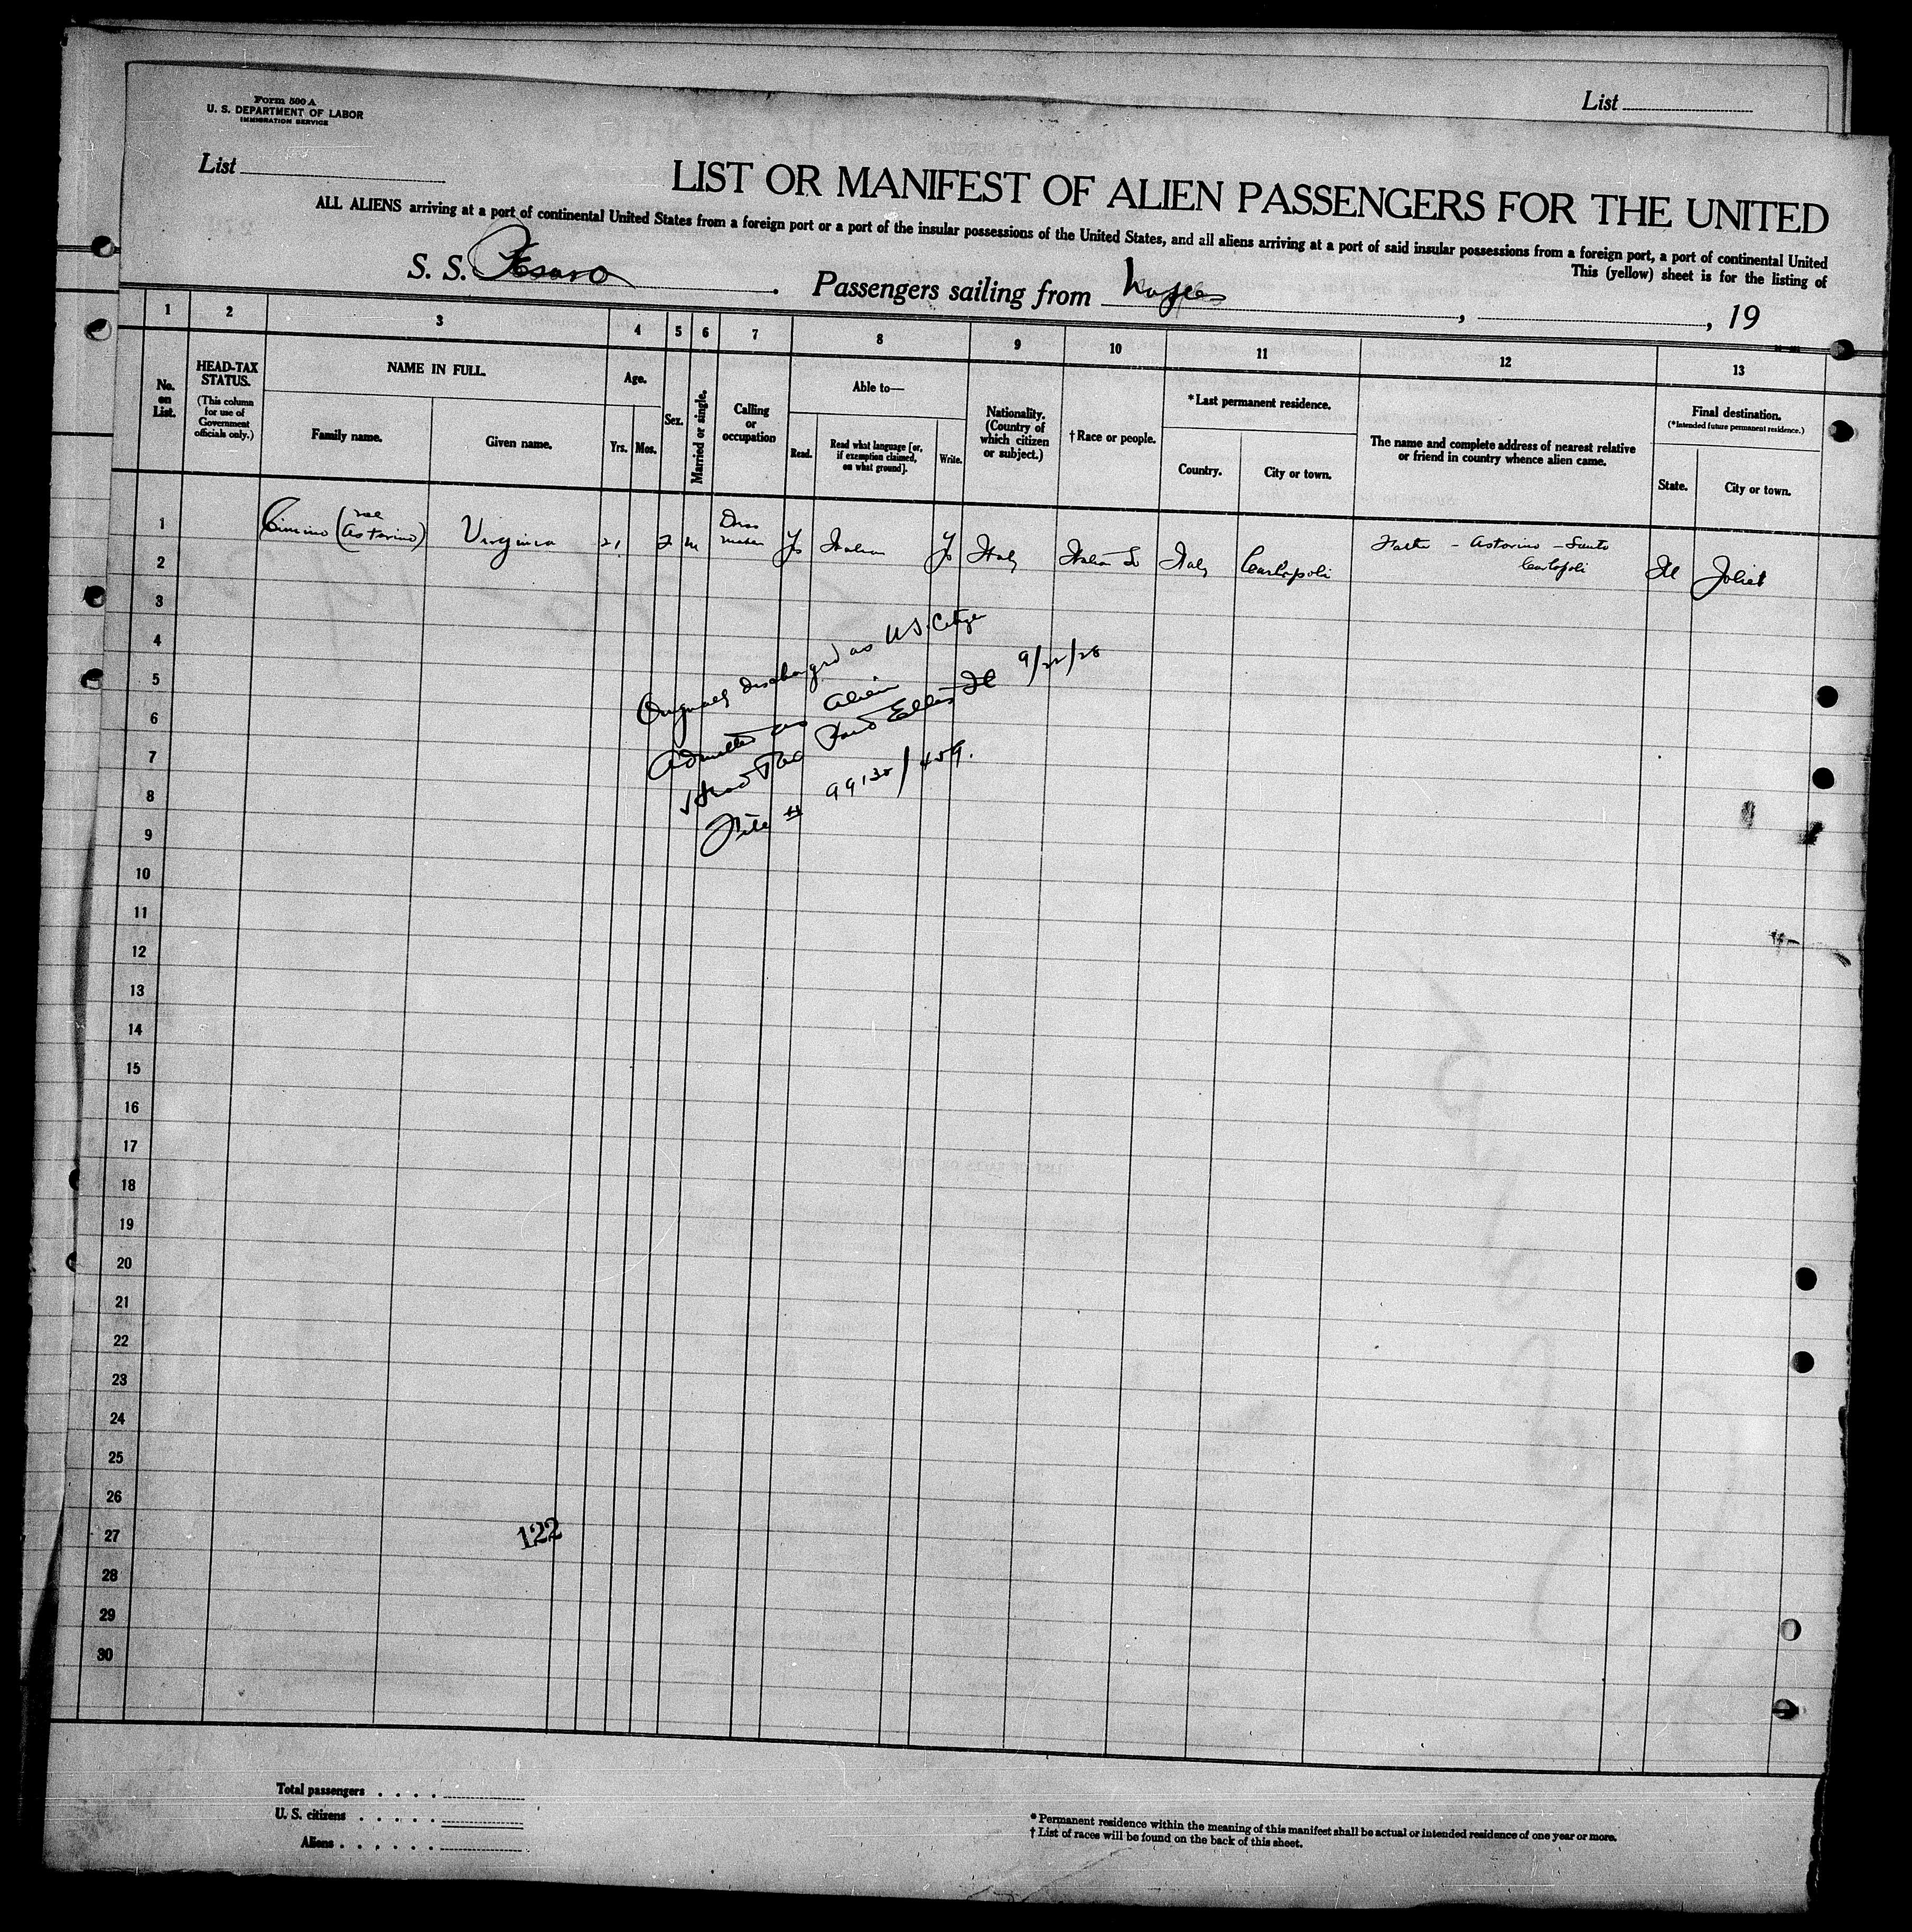 Form 500 A
U. S. DEPARTMENT OF LABOR
IMMIGRATION SERVICE
List
List
LIST OR MANIFEST OF ALIEN PASSENGERS FOR THE UNITED
ALL ALIENS arriving at a port of continental United States from a foreign port or a port of the insular possessions of the United States, and all aliens arriving at a port of said insular possessions from a foreign port, a port of continental United
This (yellow) sheet is for the listing of
S. S. Pesaro. Passengers sailing from Naples, , 19
1 2 3 4 5 6 7 8 9 10 11 12 13
No. on List.
HEAD-TAX STATUS.
(This column for use of Government officials only.)
NAME IN FULL.
Family name.
Given name.
Age.
Yrs.
Mos.
Sex.
Married or single.
Calling or occupation
Able to—
Read.
Read what language [or, if exemption claimed, on what ground].
Write.
Nationality. (Country of which citizen or subject.)
†Race or people.
*Last permanent residence.
Country.
City or town.
The name and complete address of nearest relative or friend in country whence alien came.
Final destination.
(*Intended future permanent residence.)
State.
City or town.
1 Cimino (nee Astorino) Virginia 21 F M Dress maker Ys Italian Ys Italy Italian S Italy Carlopoli Father - Astorino - Santo Carlopoli Ill Joliet
2
3
4
5
6
7
8
9
10
11
12
13
14
15
16
17
18
19
20
21
22
23
24
25
26
27
28
29
30
Originally discharged as U.S. Citizen
Admitted as Alien
Head Tax Paid Ellis Isl 9/22/28
File # 99138/459.
122
Total passengers . . . .
U. S. citizens . . . . .
Aliens . . . . . .
* Permanent residence within the meaning of this manifest shall be actual or intended residence of one year or more.
† List of races will be found on the back of this sheet.